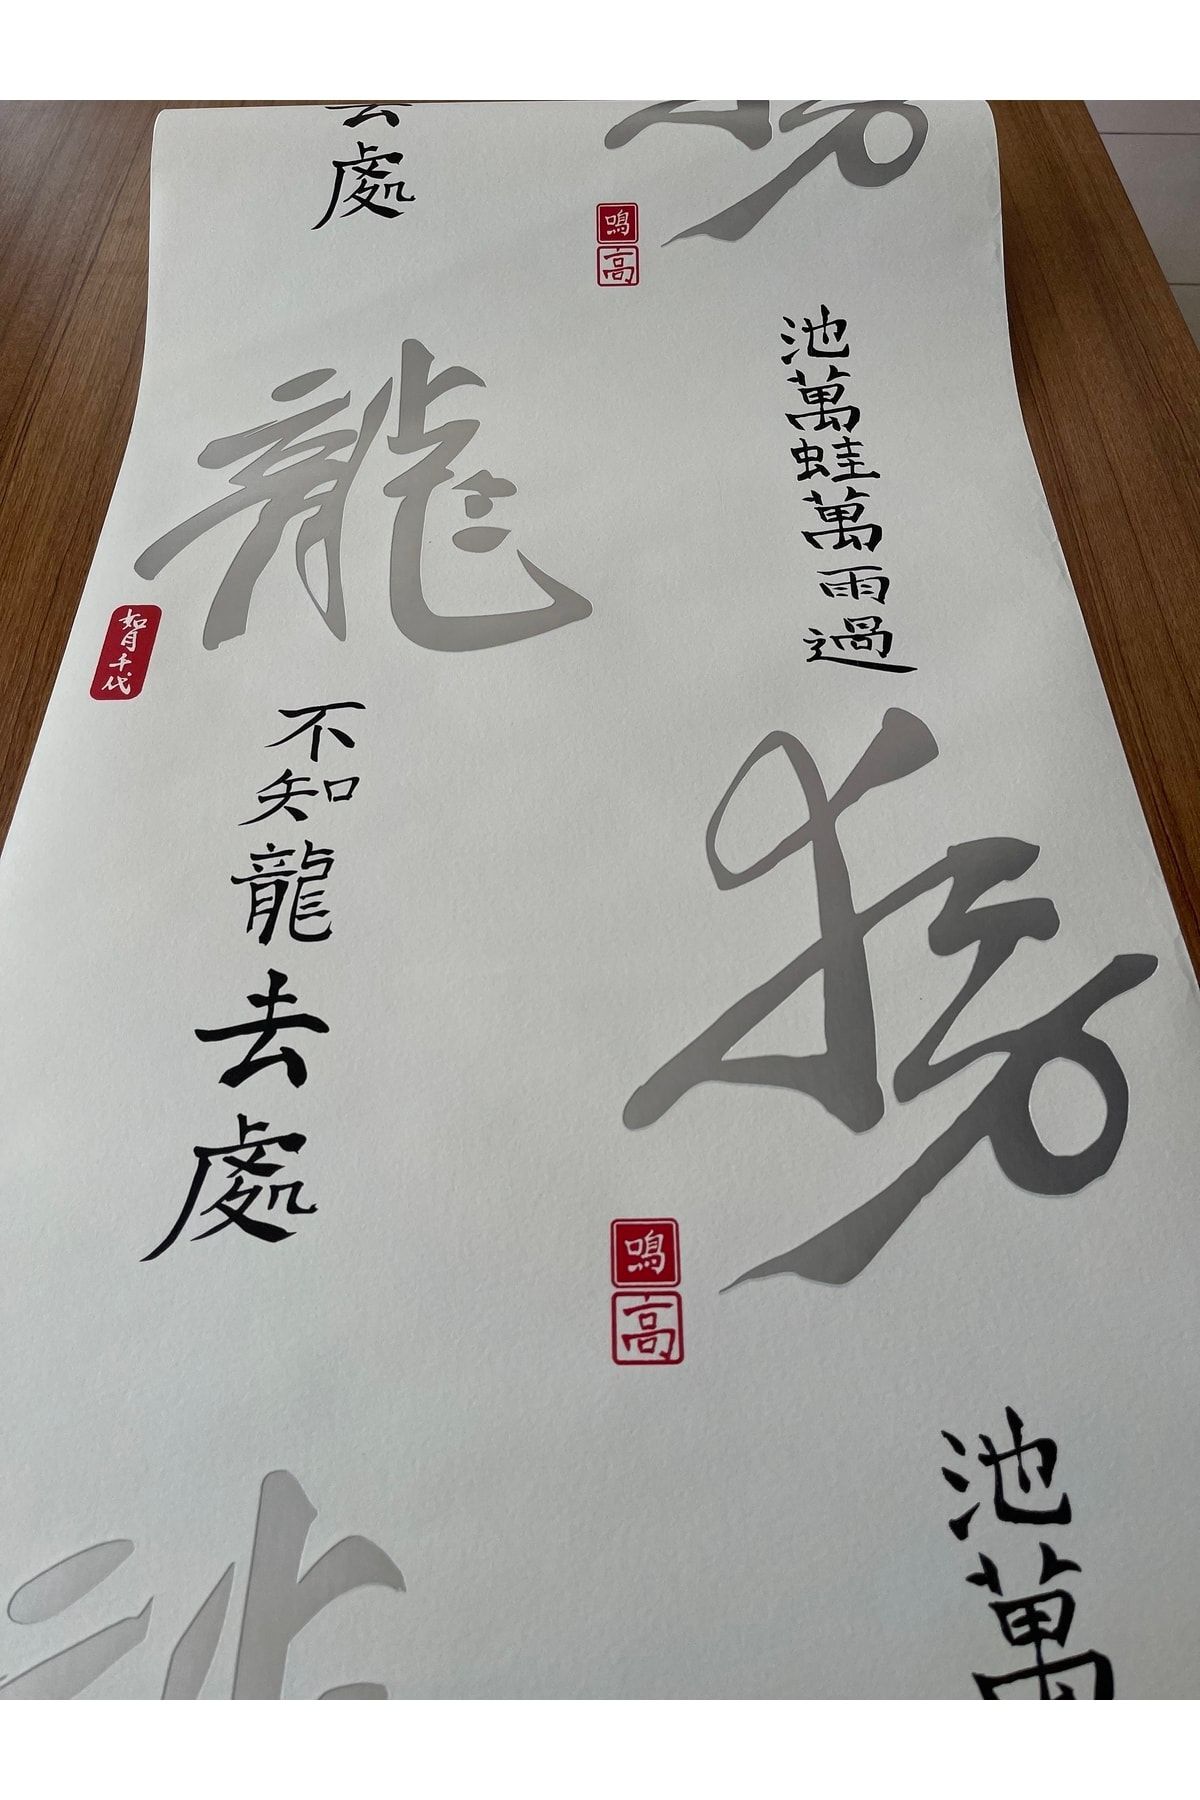 去處
鳴
高
池萬蛙萬雨過
龍
如月千代
不知龍去處
鳴
高
池萬